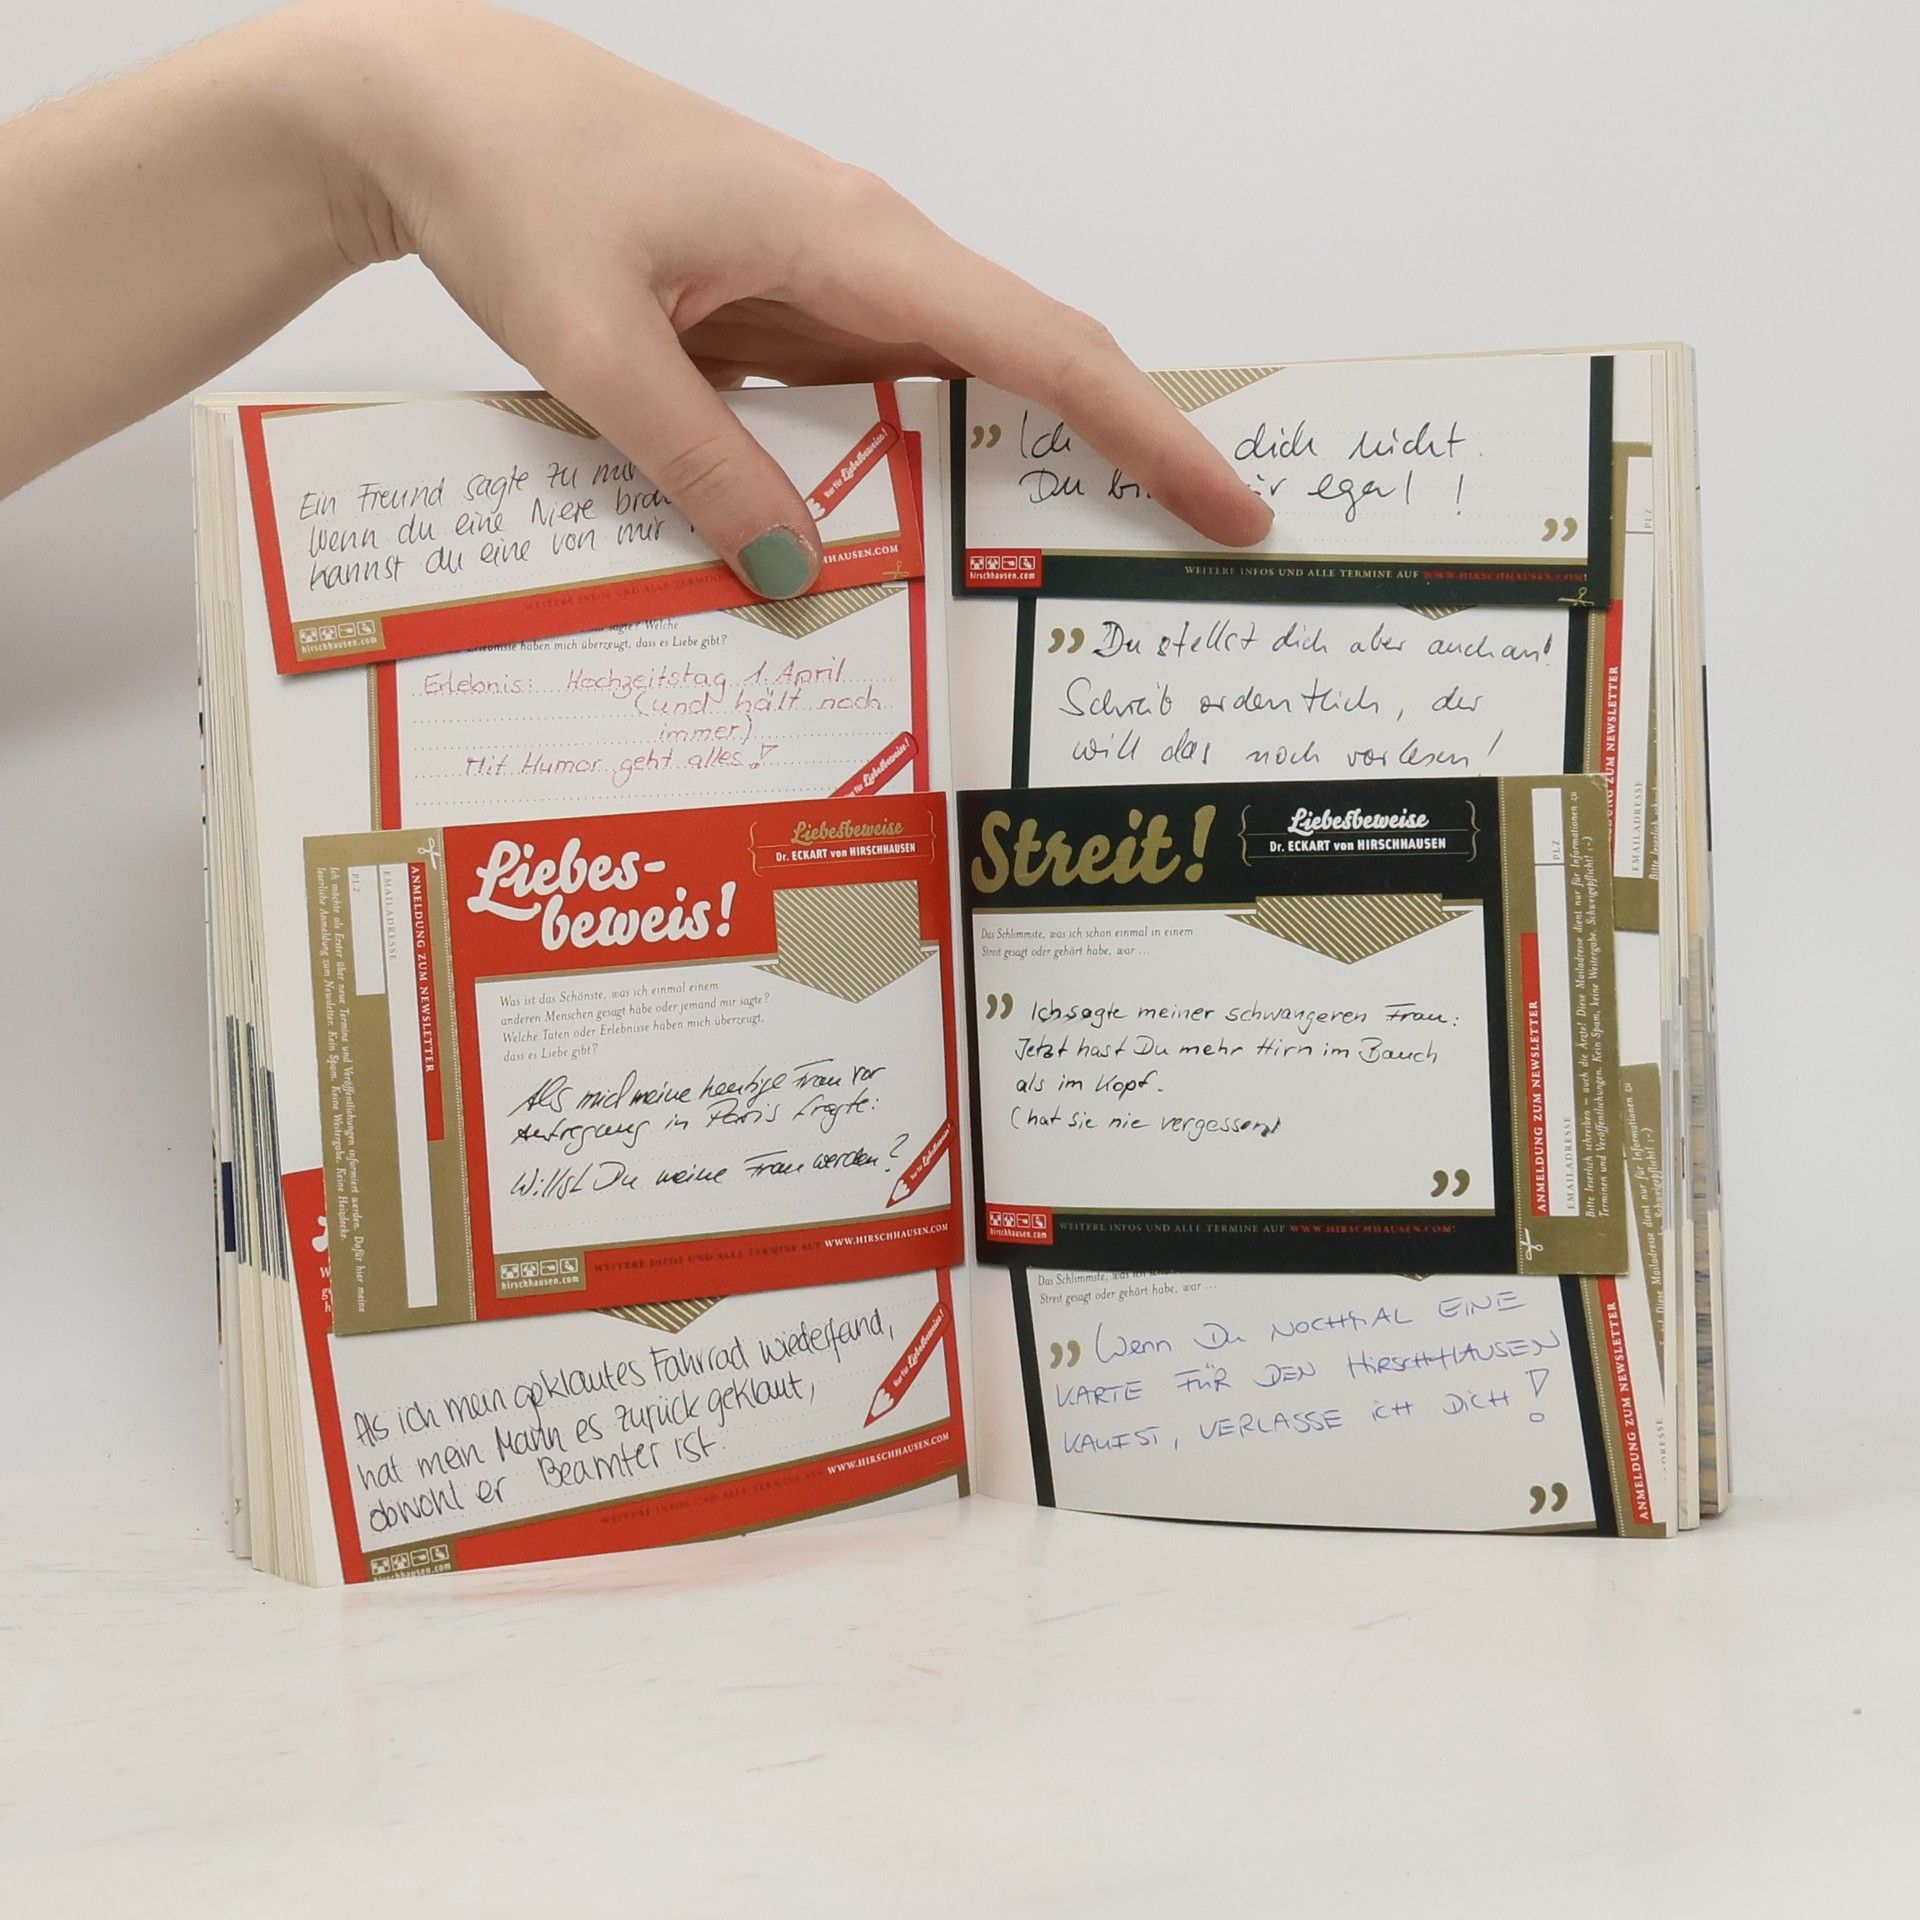 Ein Freund sagte zu mir
Wenn du eine Niere
kannst du eine von mir
Nur für Liebesbeweise!
HHAUSEN.COM
hirschhausen.com
sagte? Welche
Erlebnisse haben mich überzeugt, dass es Liebe gibt?
Erlebnis: Hochzeitstag 1. April
(und hält noch
immer)
Mit Humor geht alles!
Liebesbeweise!
Liebes-
beweis!
Liebesbeweise
Dr. ECKART von HIRSCHHAUSEN
Was ist das Schönste, was ich einmal einem
anderen Menschen gesagt habe oder jemand mir sagte?
Welche Taten oder Erlebnisse haben mich überzeugt,
dass es Liebe gibt?
Als mich meine heutige Frau vor
Aufregung in Paris fragte:
Willst Du meine Frau werden?
Nur für Liebesbeweise!
hirschhausen.com
WEITERE INFOS UND ALLE TERMINE AUF WWW.HIRSCHHAUSEN.COM
ANMELDUNG ZUM NEWSLETTER
EMAILADRESSE
PLZ
Ich möchte als Erster über neue Termine und Veröffentlichungen informiert werden. Dafür hier meine
leserliche Anmeldung zum Newsletter. Kein Spam. Keine Weitergabe. Keine Heizdecke.
Als ich mein geklautes Fahrrad wiederfand,
hat mein Mann es zurück geklaut,
obwohl er Beamter ist.
Nur für Liebesbeweise!
WEITERE INFOS UND ALLE TERMINE AUF WWW.HIRSCHHAUSEN.COM
hirschhausen.com
” Ich dich nicht.
Du egal!
”
hirschhausen.com
WEITERE INFOS UND ALLE TERMINE AUF WWW.HIRSCHHAUSEN.COM!
” Du stellst dich aber auch an!
Schreib ordentlich, der
will das noch vorlesen!
Streit!
Liebesbeweise
Dr. ECKART von HIRSCHHAUSEN
Das Schlimmste, was ich schon einmal in einem
Streit gesagt oder gehört habe, war ...
” Ich sagte meiner schwangeren Frau:
Jetzt hast Du mehr Hirn im Bauch
als im Kopf.
(hat sie nie vergessen)
”
hirschhausen.com
WEITERE INFOS UND ALLE TERMINE AUF WWW.HIRSCHHAUSEN.COM!
ANMELDUNG ZUM NEWSLETTER
EMAILADRESSE
PLZ
Bitte leserlich schreiben – auch die Ärzte! Diese Mailadresse dient nur für Informationen zu
Terminen und Veröffentlichungen. Kein Spam, keine Weitergabe. Schweigepflicht! ;-)
Das Schlimmste, was ich
Streit gesagt oder gehört habe, war ...
” Wenn Du NOCHMAL EINE
KARTE FÜR DEN HIRSCHHAUSEN
KAUFST, VERLASSE ICH DICH!
”
PLZ
ZUM NEWSLETTER
EMAILADRESSE
Bitte leserlich
ANMELDUNG ZUM NEWSLETTER
ADRESSE
Diese Mailadresse dient nur für Informationen zu
Schweigepflicht! ;-)